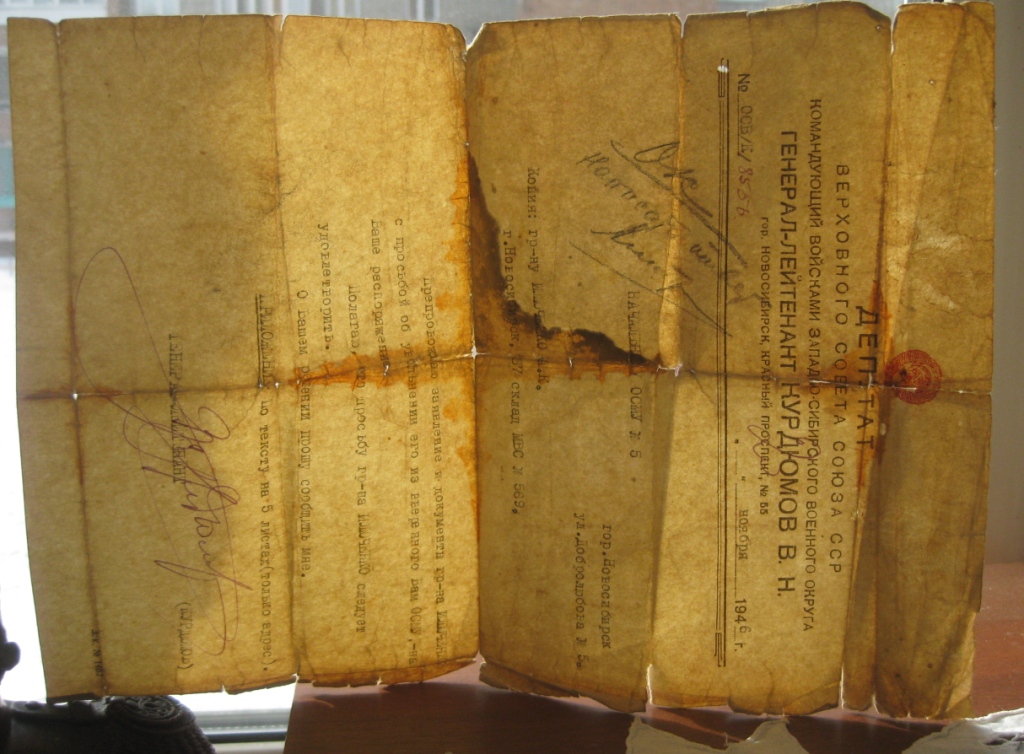 ДЕПУТАТ
ВЕРХОВНОГО СОВЕТА СОЮЗА ССР
КОМАНДУЮЩИЙ ВОЙСКАМИ ЗАПАДНО-СИБИРСКОГО ВОЕННОГО ОКРУГА
ГЕНЕРАЛ-ЛЕЙТЕНАНТ КУРДЮМОВ В. Н.
гор. НОВОСИБИРСК, КРАСНЫЙ ПРОСПЕКТ, № 55
№ ОСВ/Д/ " ноября 1946 г.
ОСМУ № 5
гор.Новосибирск
ул.Добролюбова №
Копия: гр-ну
г.Новосибирск, склад МВС № 569.
Препровождаю заявление и документы гр-на
с просьбой об увольнении его из вверенного Вам ОСМУ,-на
Ваше распоряжение.
Полагаю, что просьбу гр-на следует
удовлетворить.
О Вашем решении прошу сообщить мне.
ПРИЛОЖЕНИЕ: по тексту на 5 листах(только адресу).
ГЕНЕРАЛ-ЛЕЙТЕНАНТ
(КУРДЮМОВ)